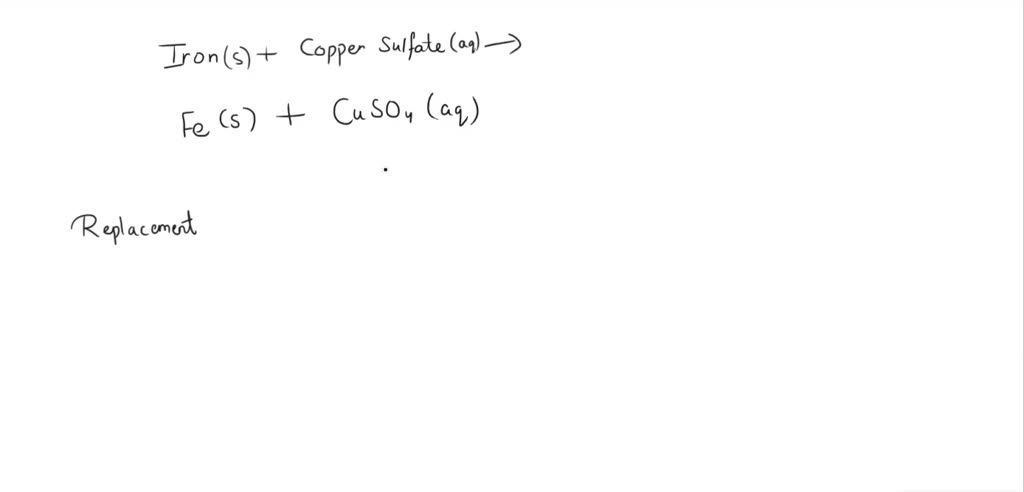 Iron(s) + Copper Sulfate (aq) →
Fe (s) + CuSO₄ (aq)
Replacement